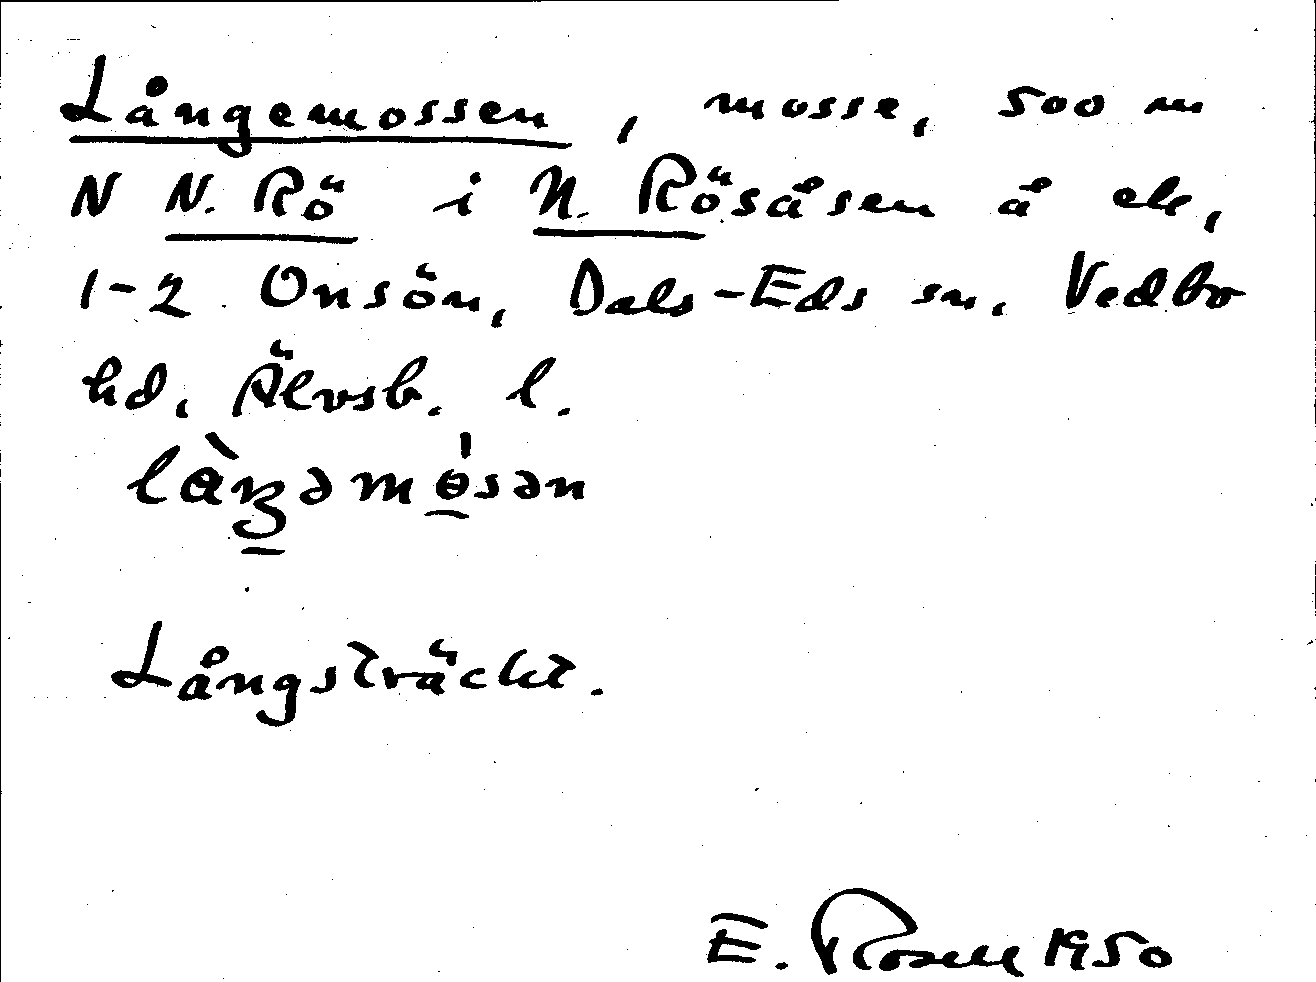 Långemossen, mosse, 500 m
N N. Rö i N. Rösåsen å ek,
1-2 Onsön, Dals-Eds sn, Vedbo
hd, Älvsb. l.
Långsträckt.
E. Rosell 1950